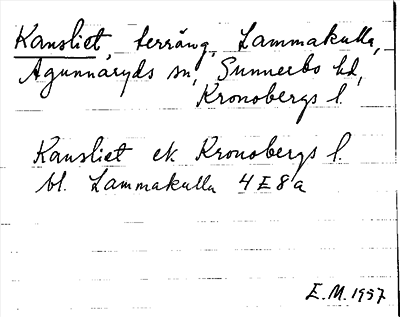 Kansliet, terräng, Lammakulla,
Agunnaryds sn, Sunnerbo hd,
Kronobergs l.
Kansliet ek Kronobergs l.
bl. Lammakulla 4 E 8 a
E.M. 1957